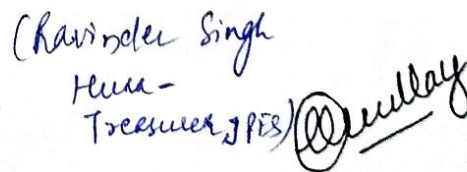 (Ravinder Singh
Hura-
Treasurer, JPIS)